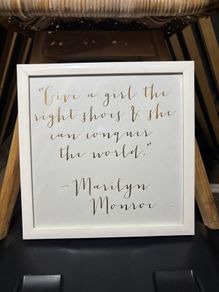 "Give a girl the
right shoes & she
can conquer
the world."
-Marilyn
Monroe